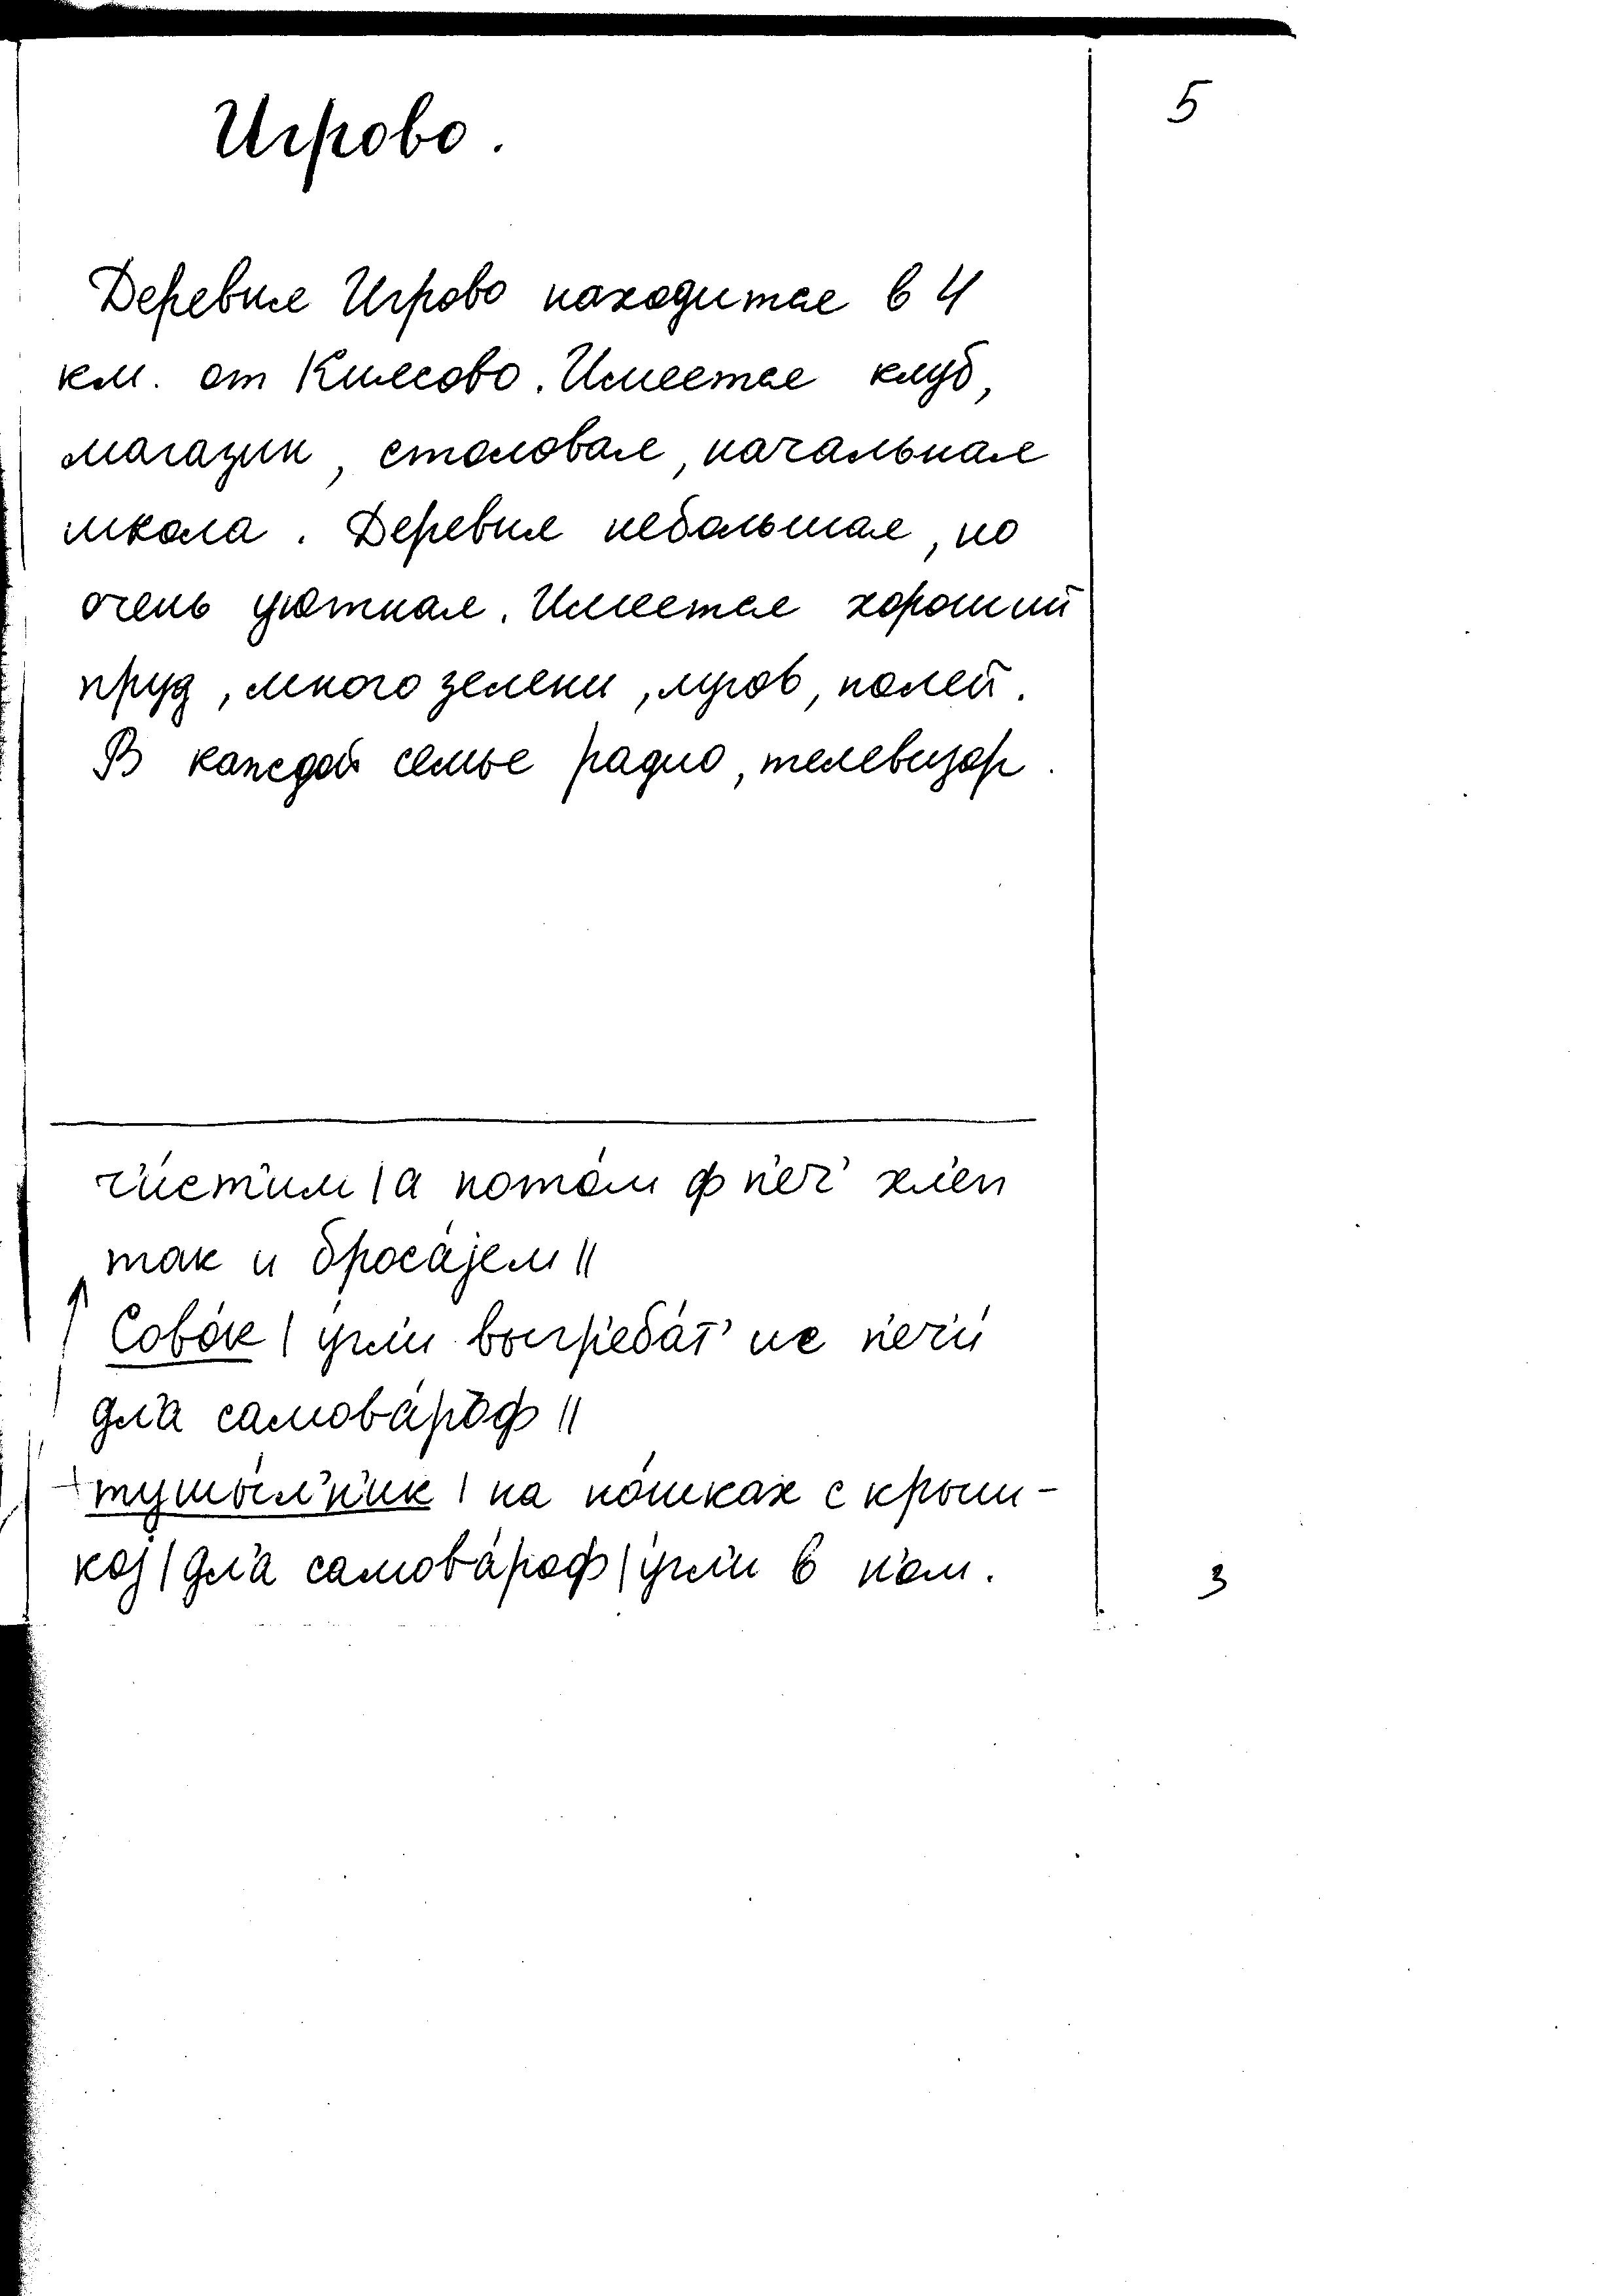 5
Игрово.
Деревня Игрово находится в 4
км. от Князево. Имеется клуб,
магазин, столовая, начальная
школа. Деревня небольшая, но
очень уютная. Имеется хороший
пруд, много зелени, лугов, полей.
В каждой семье радио, телевизор.
ч'и́ст'им | а пото́м ф п'еч' хл'еп
так и броса́јем ||
Сово́к | у́гл'и выгр'еба́т' ис п'еч'и́
дл'а самова́роф ||
+ тушы́л'н'ик | на но́шках с крыш-
кој | дл'а самова́роф | у́гл'и в н'ом.
3